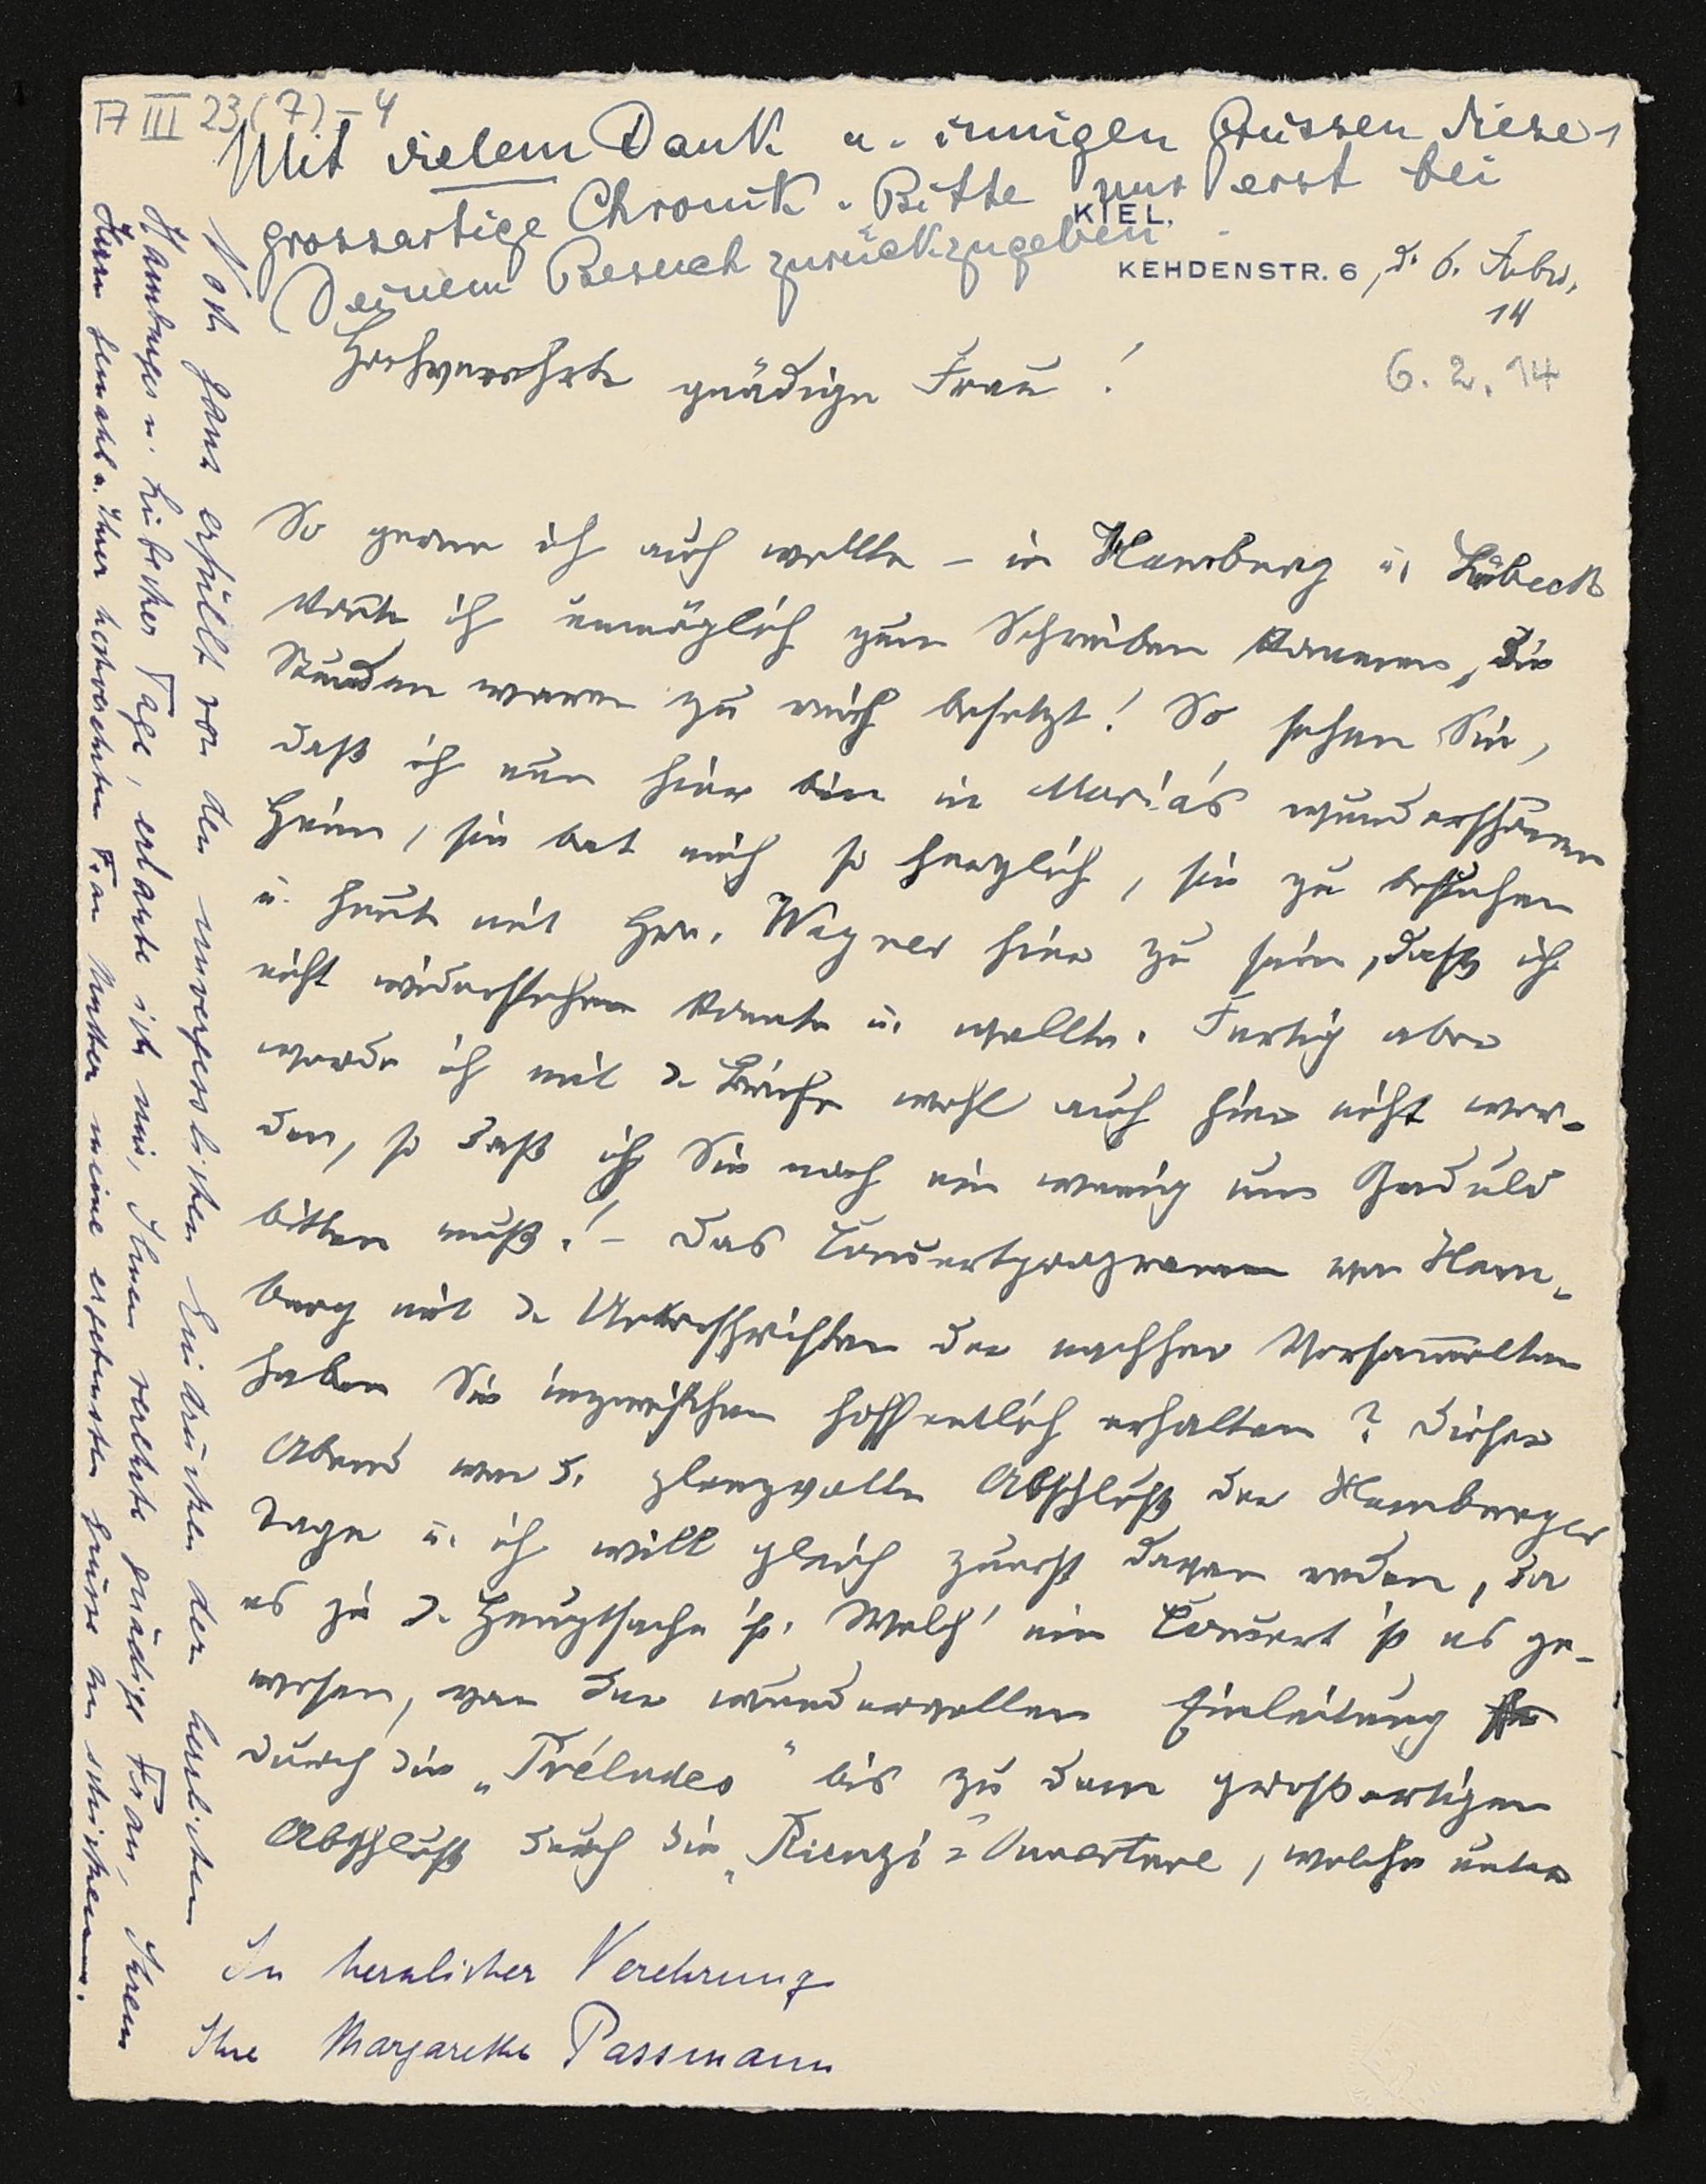 17 III 23 (7) - 4
Mit vielem Dank u. innigen Grüssen diese
grossartige Chronik. Bitte nur erst bei
Deinem Besuch zurückzugeben.
KIEL,
KEHDENSTR. 6, d. 6. Febr.
14
6. 2. 14
Hochverehrte gnädige Frau!
So gerne ich auch wollte – in Hamburg u. Lübeck
konnte ich unmöglich zum Schreiben kommen, die
Stunden waren zu reich besetzt! So sehen Sie,
daß ich nun hier bin in Maria's wunderschönem
Heim, sie bat mich so herzlich, sie zu besuchen
u. heute mit Hrn. Wagner hier zu sein, daß ich
nicht widerstehen konnte u. wollte. Fertig aber
werde ich mit d. Briefe wohl auch hier nicht wer-
den, so daß ich Sie noch ein wenig um Geduld
bitten muß! – Das Concertprogramm von Ham-
burg mit d. Unterschriften der nachher Versam̅elten
haben Sie inzwischen hoffentlich erhalten? Dieser
Abend war d. glanzvolle Abschluß der Hamburger
Tage u. ich will gleich zuerst davon reden, da
es ja d. Hauptsache ist. Welch' ein Concert ist es ge-
wesen, von der wundervollen Einleitung
durch die „Préludes" bis zu dem großartigen
Abschluß durch die „Rienzi"=Ouverture, welche unter
In herzlicher Verehrung
Ihre Margarethe Passmann
Noch ganz erfüllt von den unvergesslichen Eindrücken der herrlichen
Hamburger u. Lübecker Tage, erlaube ich mir, Ihnen verehrte gnädige Frau, Ihrem
Herrn Gemahl u. Ihrer hochverehrten Frau Mutter meine ergebensten Grüsse zu schicken.